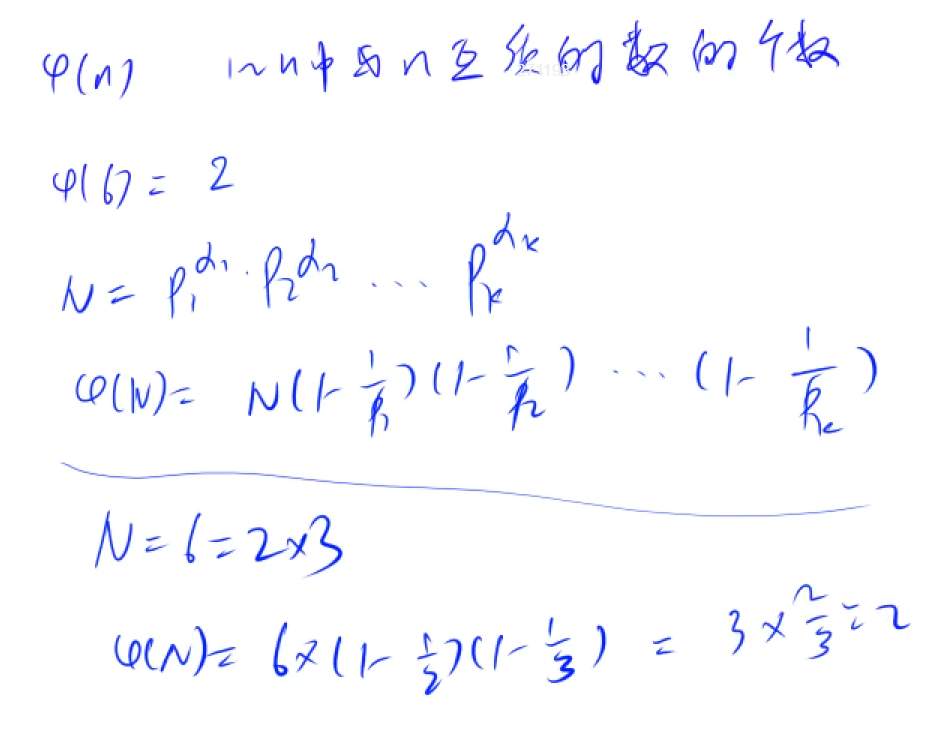 φ(n) 1~n中与n互质的数的个数
φ(6) = 2
N = P₁^α₁ · P₂^α₂ ... Pₖ^αₖ
φ(N) = N(1-1/P₁)(1-1/P₂) ... (1-1/Pₖ)
N=6=2×3
φ(N)= 6×(1-1/2)(1-1/3) = 3×2/3=2